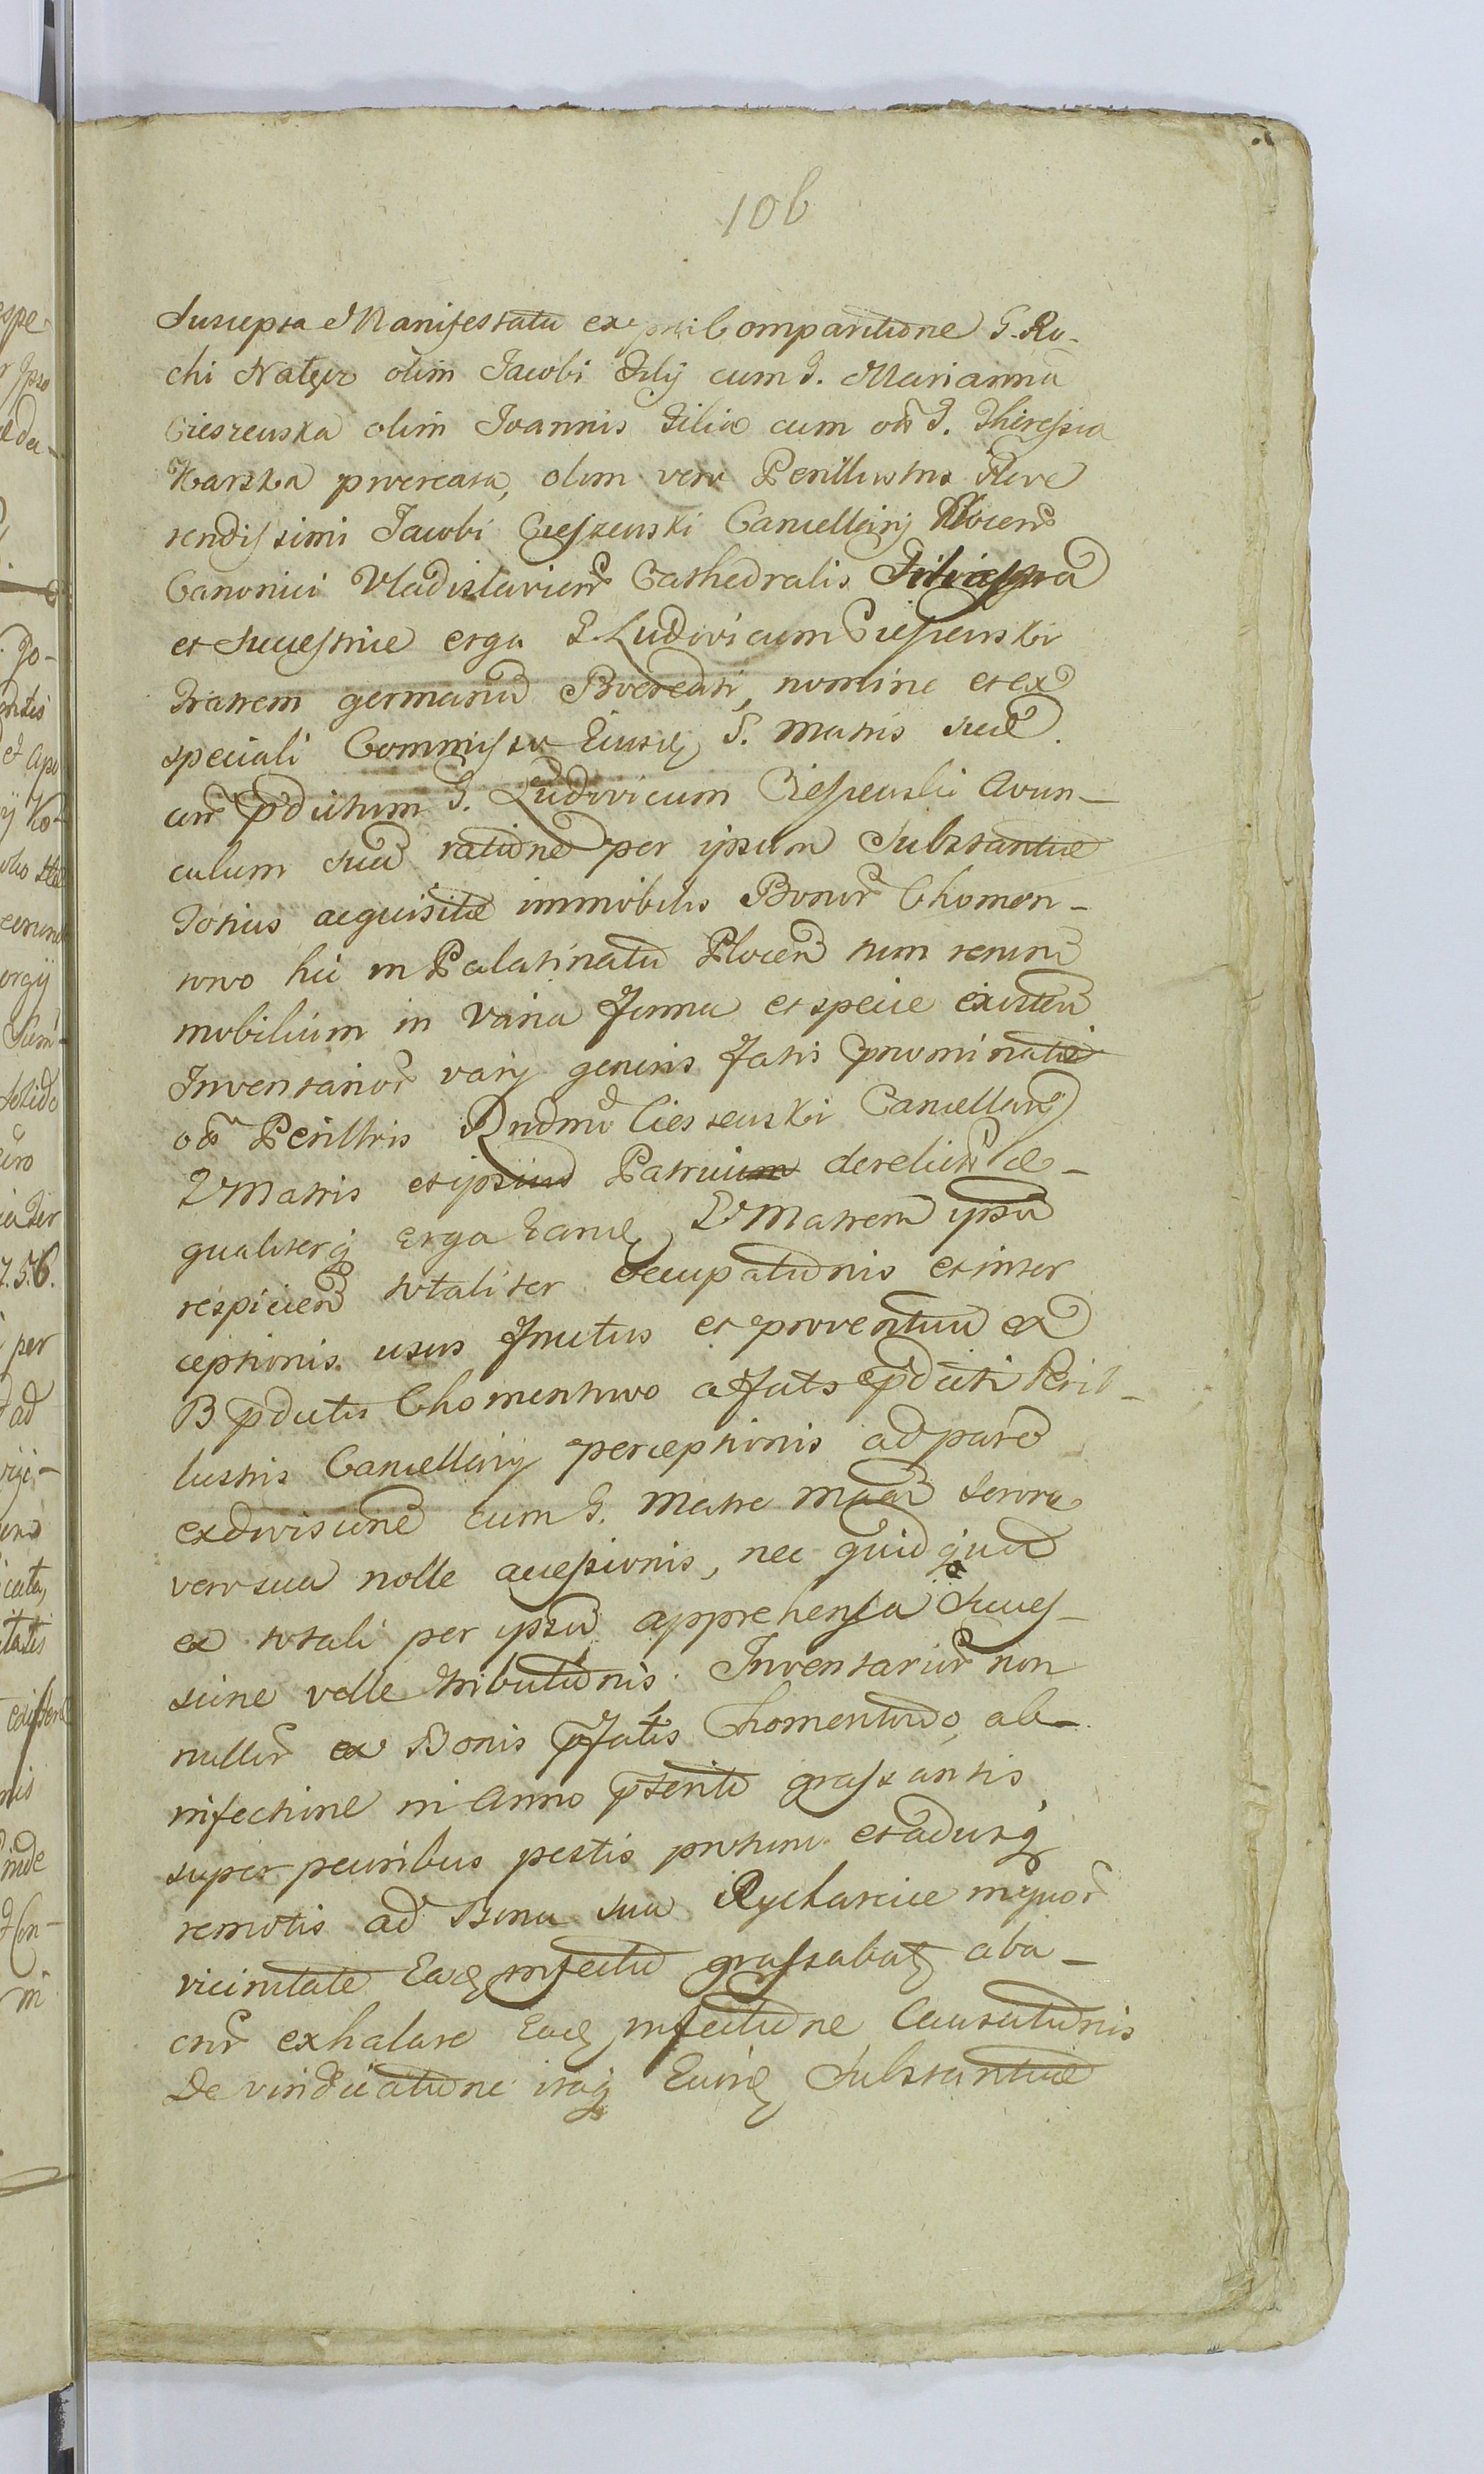 106
Suscepta Manifestatio ex Comparitione G. Ro-
chi Natęcz olim Jacobi Filij cum G. Marianna
Cieszewska olim Joannis Filia cum olim G. Theressia
Karska procreata, olim vero Perillustris Reve
rendissimi Jacobi Cieszewski Cancellarij Plocen
Canonici Vladislavien Cathedralis
et Successrice erga G. Ludovicum Cieszewski
Fratrem germanu Procreati, nomine et ex
speciali Commisso Eiusd G. Matris suae
cur pdictum G. Ludovicum Cieszewski Avun-
culum suu ratione per ipsum Substantiae
Totius acquisitae immobilis Bonor Chomen-
towo hic in Palatinatu Plocen tum rerum
mobilium in varia forma et specie existen
Inventarior varij generis fatis pnominati
olim Perillris Rndmi Cieszewski Cancellarij
G Matris et ipsius Patrui derelict ae-
qualiterq erga Eand G Matrem ipsu
respicien totaliter occupationis et inter
ceptionis usus fructus et proventuu ex
B pdictis Chomentowo a fatis pdicti Peril-
lustris Cancellarij perceptionis ad pare
exdivisione cum G. Matre Sorore
vero sua nolle accessionis, nec quidqua
ex totali per ipsu apprehensa Succes-
sione velle tributionis. Inventarior non
nullor ex Bonis pfatis Chomentowo, ab
infectione in Anno pterito grassantis
super pecoribus pestis protunc et adusq
remotis ad Bona sua Rycharcice inquor
vicinitate Ead infectio grassabat aba-
cnr exhalare Ead infectione Causationis
De vindicatione itaq Eiusd Substantiae